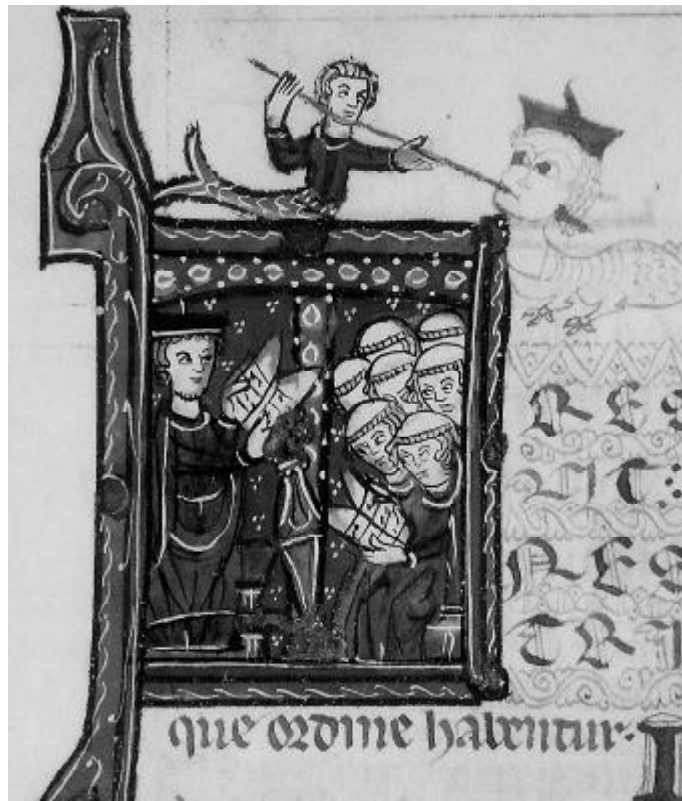 RES
UIT:
TRI
que ordine habentur.